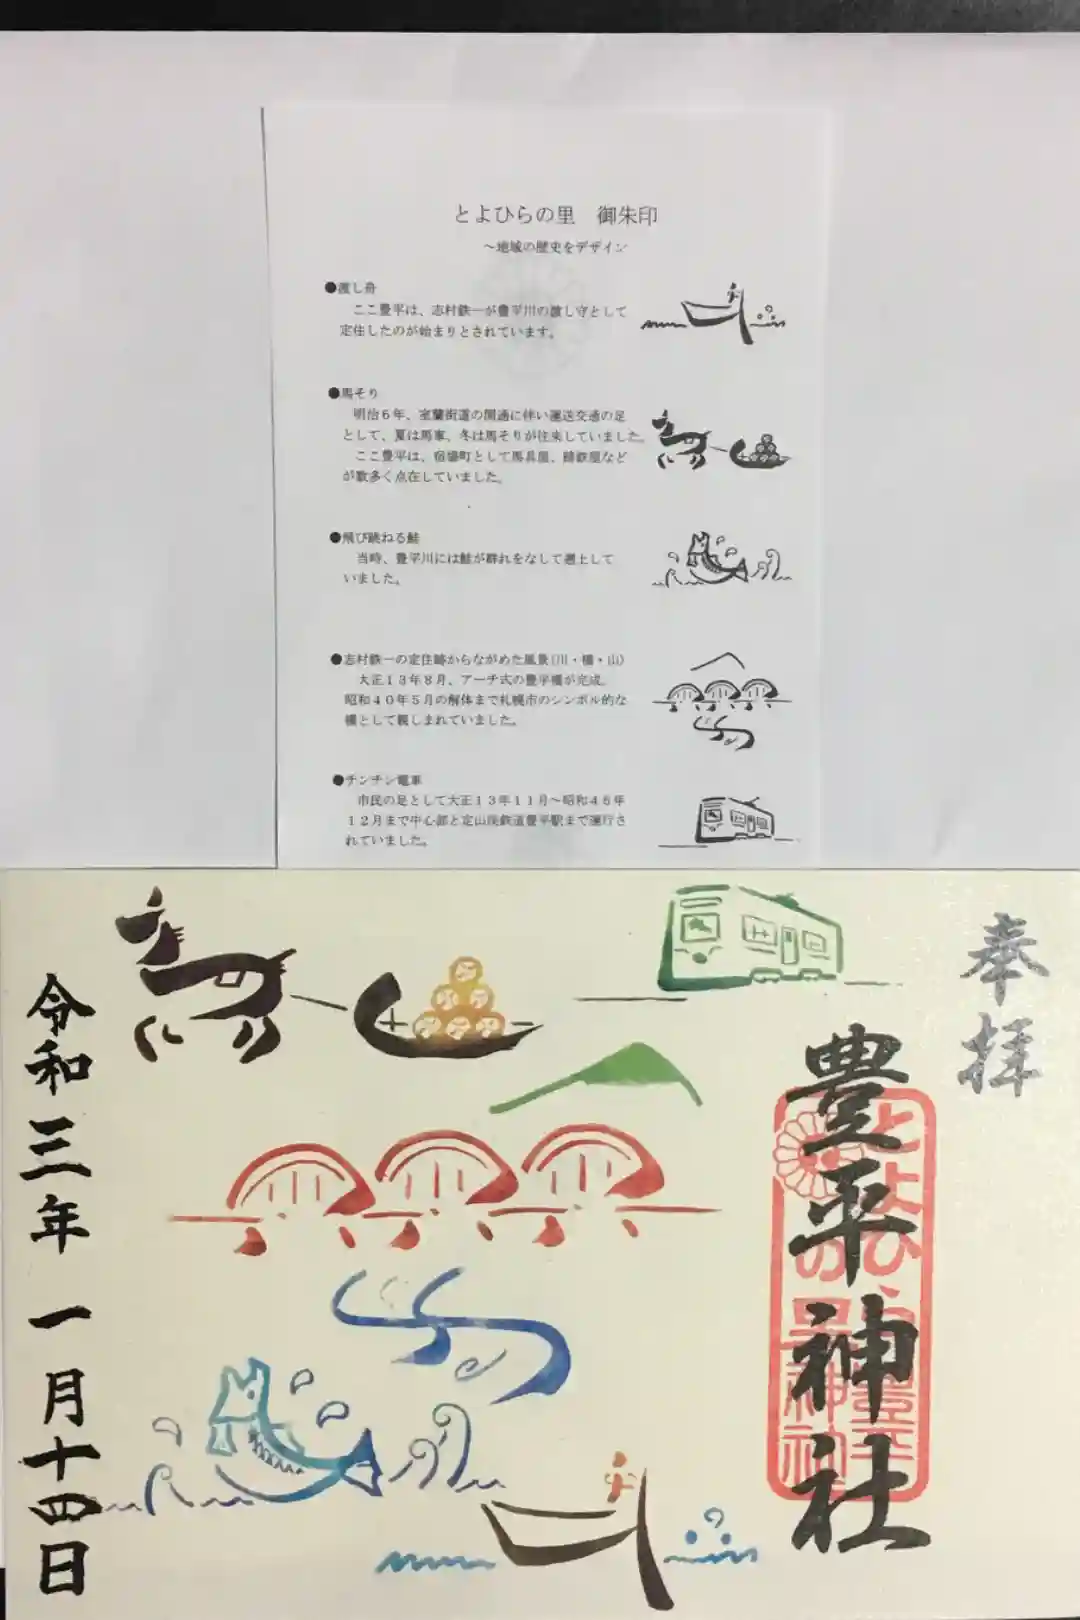 とよひらの里　御朱印
～地域の歴史をデザイン
●渡し舟
ここ豊平は、志村鉄一が豊平川の渡し守として
定住したのが始まりとされています。
●馬そり
明治６年、室蘭街道の開通に伴い運送交通の足
として、夏は馬車、冬は馬そりが往来していました。
ここ豊平は、宿場町として馬具屋、蹄鉄屋など
が数多く点在していました。
●飛び跳ねる鮭
当時、豊平川には鮭が群れをなして遡上して
いました。
●志村鉄一の定住跡からながめた風景(川・橋・山)
大正１３年８月、アーチ式の豊平橋が完成。
昭和４０年５月の解体まで札幌市のシンボル的な
橋として親しまれていました。
●チンチン電車
市民の足として大正１３年１１月～昭和４６年
１２月まで中心部と定山渓鉄道豊平駅まで運行さ
れていました。
奉拝
豊平神社
とよひら
の里
令和三年一月十四日